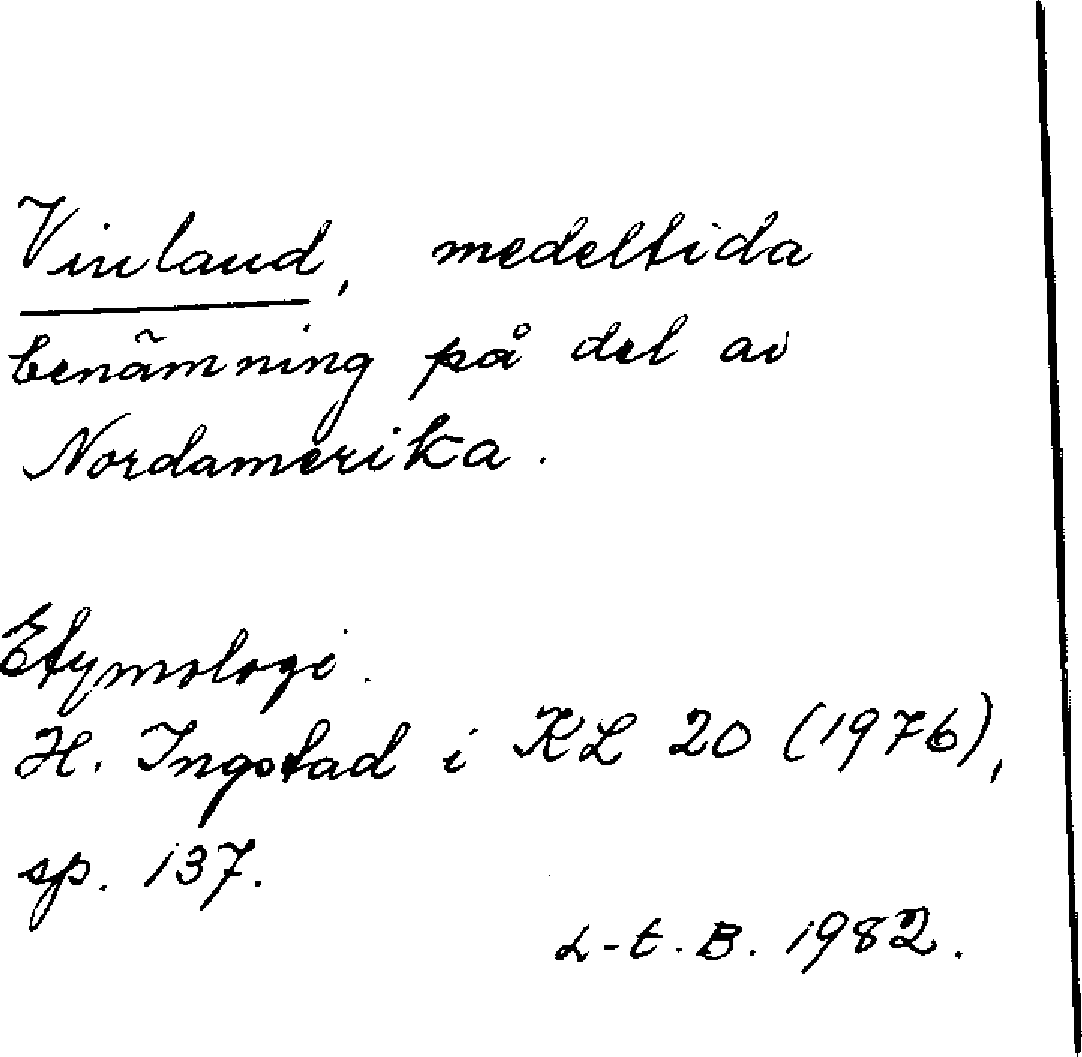 Vinland, medeltida
benämning på del av
Nordamerika.
Etymologi.
H. Ingstad i KL 20 (1976),
sp. 137.
L-t. B. 1982.